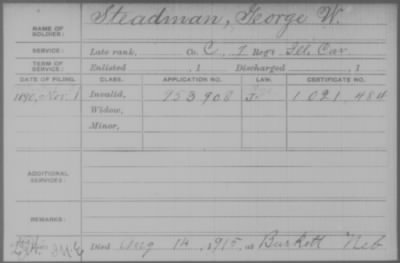 NAME OF SOLDIER: Steadman, George W.
SERVICE: Late rank, Co. C, 7 Reg't Ill. Cav.
TERM OF SERVICE: Enlisted , 1 Discharged , 1
DATE OF FILING. CLASS. APPLICATION NO. LAW. CERTIFICATE NO.
1890, Nov. 1 Invalid, 953908 1021.484
Widow,
Minor,
ADDITIONAL SERVICES:
REMARKS:
Died Aug 14, 1915, at Burkett Neb